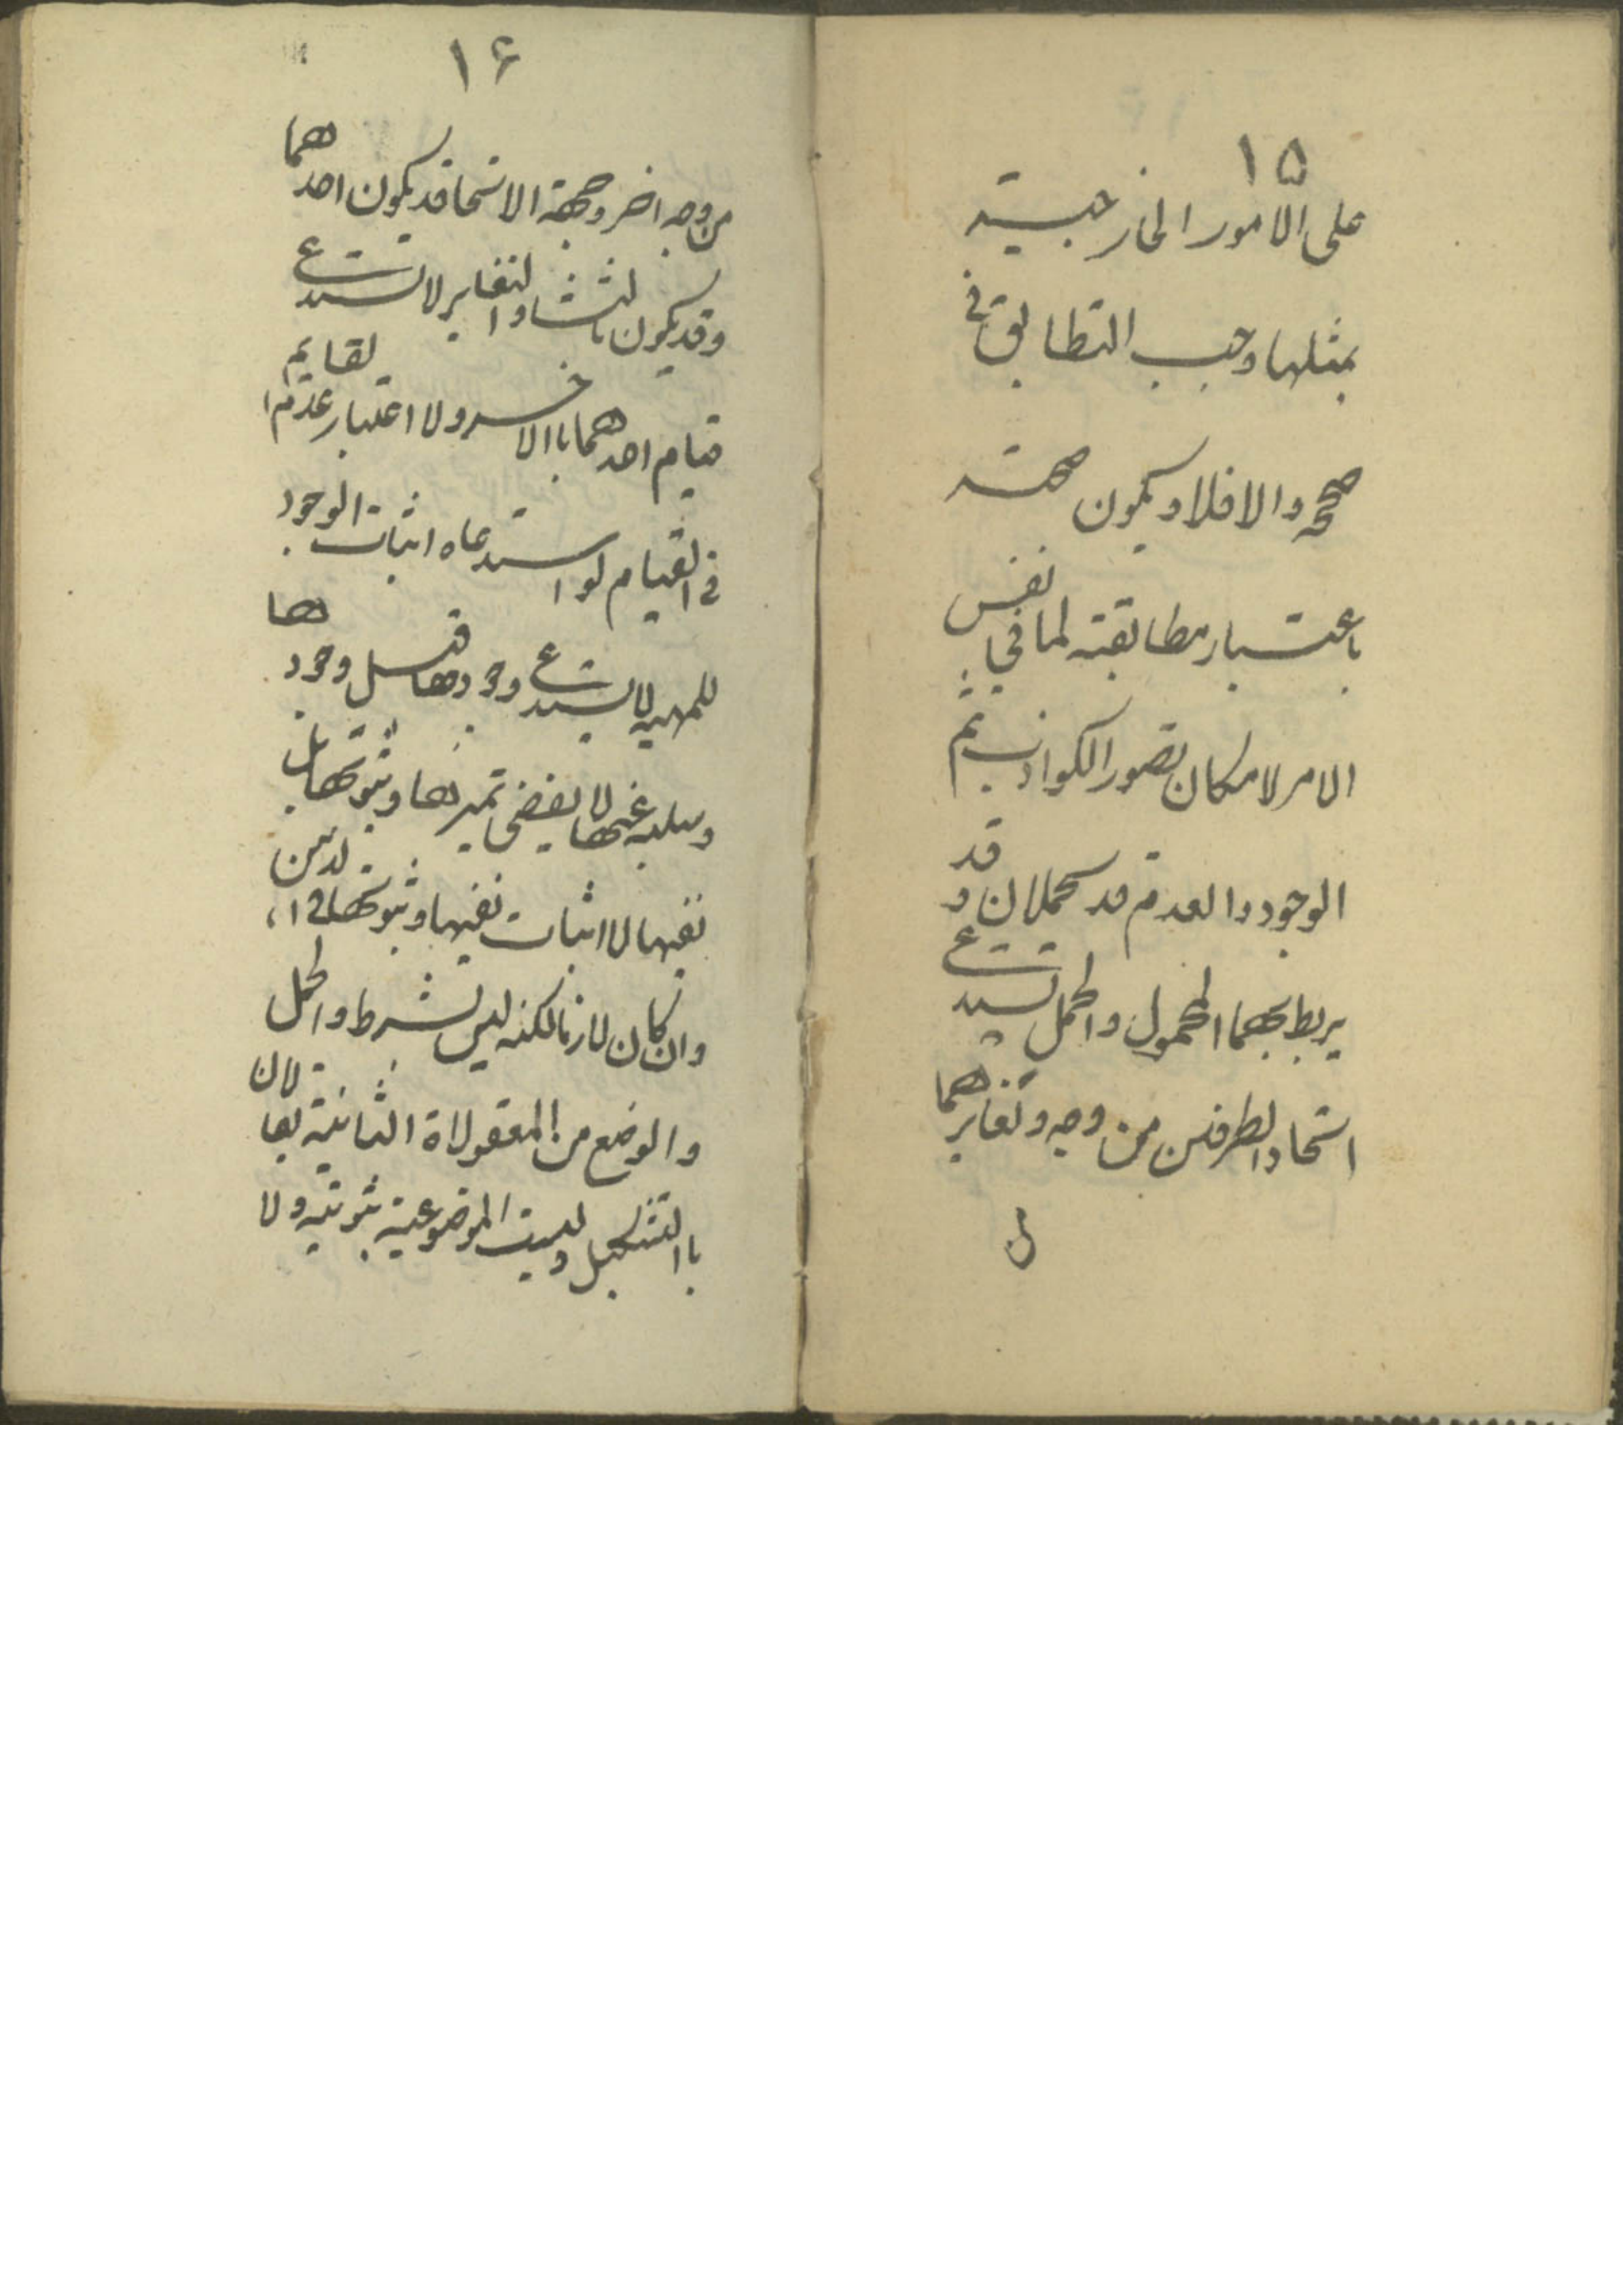 ١۵
على الامور الخارجية
بمثلها وجب التطابق في
صححه والا فلا ويكون صحته
باعتبار مطابقته لما في نفس
الامر لامكان تصور الكواذب ثم
الوجود والعدم قد يحملان و قد
يربط بهما المحمول والحمل يستدعي
اتحاد الطرفين من وجه وتغايرهما
١۶
من وجه اخر وجهة الاتحاد قد يكون احدهما
وقد يكون ثالثا والتغاير لا يستدعي
قيام احدهما باالاخر ولا اعتبار عدم القايم
في القيام لو استدعاه اثبات الوجود
للمهيه لا يستدعي وجودها قبل وجودها
وسلبه عنها لا يقضي تميزها وثبوتها بل
نفيها لا اثبات نفيها وثبوتها في الذهن
وان كان لازما لكنه ليس بشرط والحمل
والوضع من المعقولاة الثانية يقالان
باالتشكيل وليست الموضوعية ثبوتيه ولا